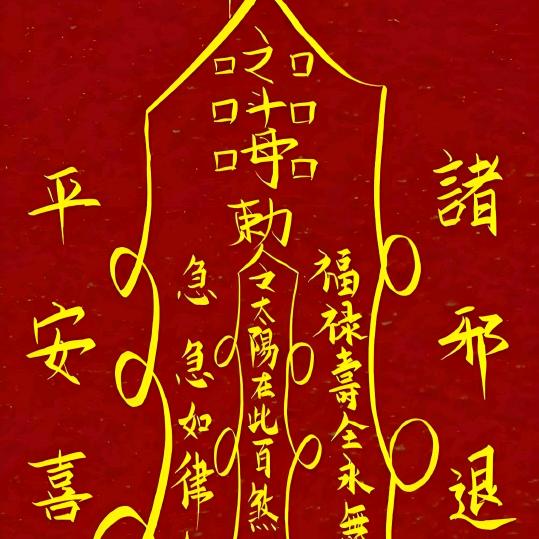 諸邪退
福禄壽全永無
之斗母勅令
太陽在此百煞
急急如律
平安喜